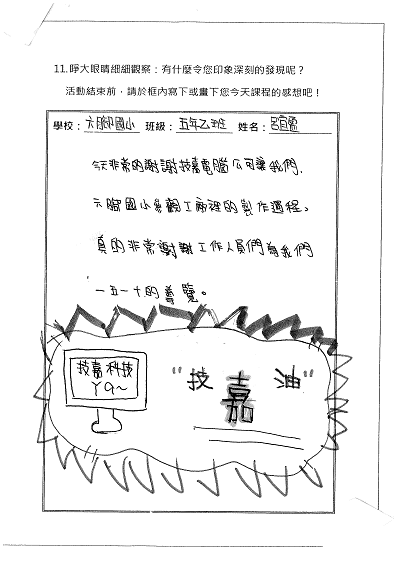 11.睜大眼睛細細觀察：有什麼令您印象深刻的發現呢？
活動結束前，請於框內寫下或畫下您今天課程的感想吧！
學校：六腳國小 班級：五年乙班 姓名：呂宜
今天非常的謝謝技嘉電腦公司讓我們，
六腳國小參觀工廠裡的製作過程。
真的非常謝謝工作人員們為我們
一五一十的導覽。
技嘉科技
YA~
"技嘉油"